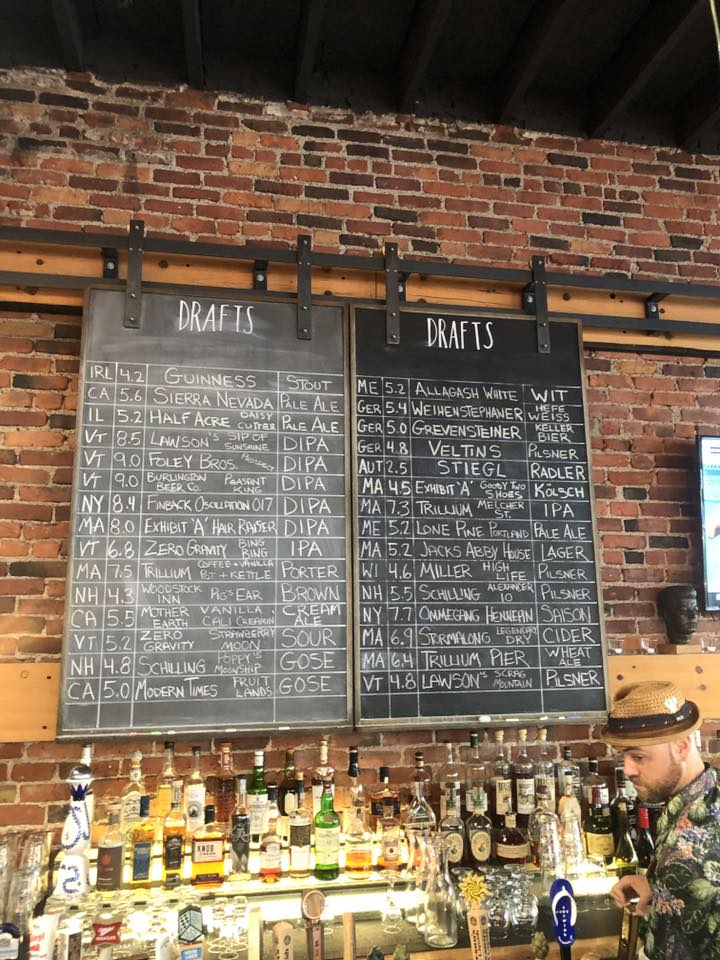 DRAFTS
IRL 4.2 GUINNESS STOUT
CA 5.6 SIERRA NEVADA PALE ALE
IL 5.2 HALF ACRE DAISY CUTTER PALE ALE
VT 8.5 LAWSON'S SIP OF SUNSHINE DIPA
VT 9.0 FOLEY BROS. PROSPECT DIPA
VT 9.0 BURLINGTON BEER CO. PEASANT KING DIPA
NY 8.4 FINBACK OSCILLATION 017 DIPA
MA 8.0 EXHIBIT 'A' HAIR RAISER DIPA
VT 6.8 ZERO GRAVITY BING BING IPA
MA 7.5 TRILLIUM COFFEE + VANILLA POT + KETTLE PORTER
NH 4.3 WOODSTOCK INN PIG'S EAR BROWN
CA 5.5 MOTHER EARTH VANILLA CALI CREAMIN CREAM ALE
VT 5.2 ZERO GRAVITY STRAWBERRY MOON SOUR
NH 4.8 SCHILLING POPPY'S MOONSHIP GOSE
CA 5.0 MODERN TIMES FRUIT LANDS GOSE
DRAFTS
ME 5.2 ALLAGASH WHITE WIT
GER 5.4 WEIHENSTEPHANER HEFE WEISS
GER 5.0 GREVENSTEINER KELLER BIER
GER 4.8 VELTINS PILSNER
AUT 2.5 STIEGL RADLER
MA 4.5 EXHIBIT 'A' GOODY TWO SHOES KÖLSCH
MA 7.3 TRILLIUM MELCHER ST. IPA
ME 5.2 LONE PINE PORTLAND PALE ALE
MA 5.2 JACKS ABBY HOUSE LAGER
WI 4.6 MILLER HIGH LIFE PILSNER
NH 5.5 SCHILLING ALEXANDER 10 PILSNER
NY 7.7 OMMEGANG HENNEPIN SAISON
MA 6.9 STORMALONG LEGENDARY DRY CIDER
MA 6.4 TRILLIUM PIER WHEAT ALE
VT 4.8 LAWSON'S SCRAG MOUNTAIN PILSNER
KNOB CREEK